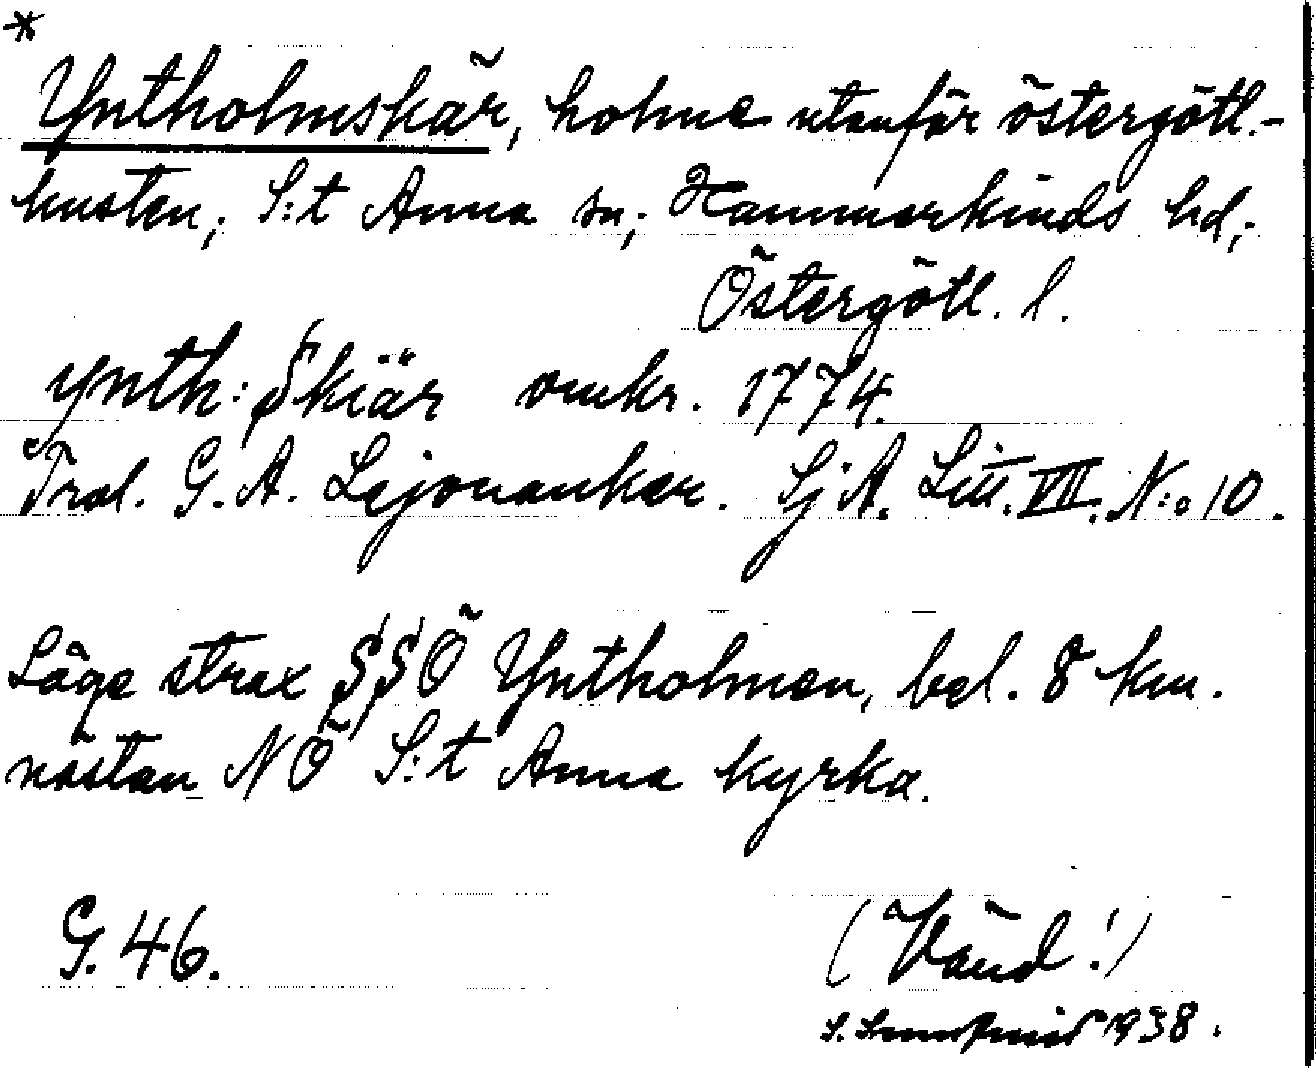 *
Yntholmskär, holme utanför östergötl.-
kusten; S:t Anna sn; Hammarkinds hd;
Östergötl. l.
ynth: Skiär omkr. 1774.
Tral. G. A. Lejonanker. Sj A. Litt. VII. N:o 10.
Läge strax SSÖ Yntholmen, bel. 8 km.
nästan NÖ S:t Anna kyrka.
G. 46. (Vänd!)
1938.